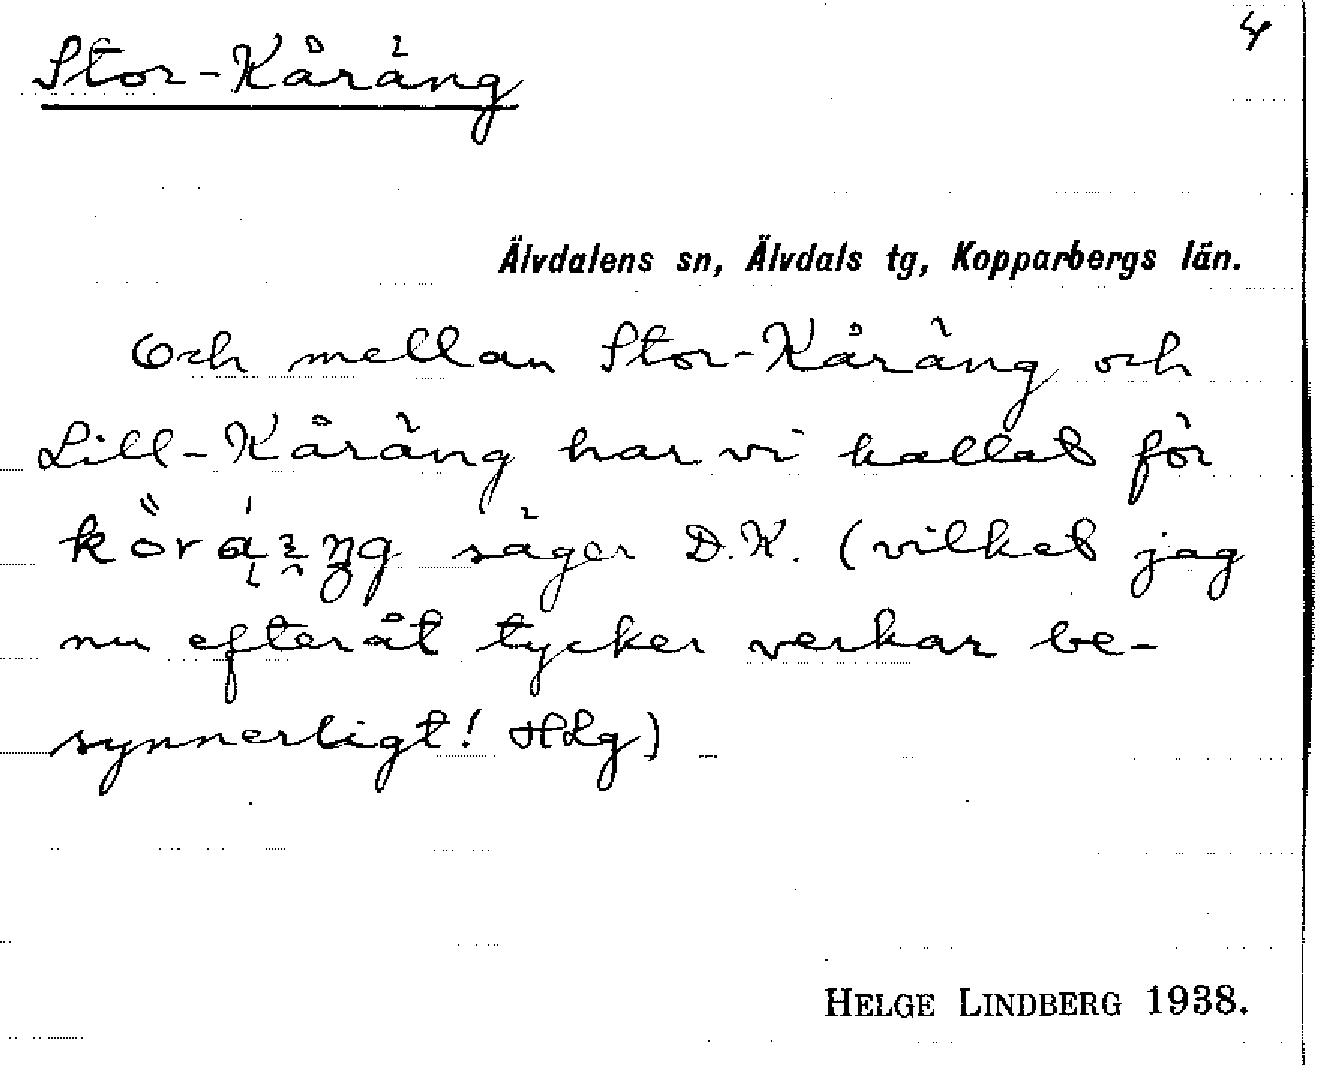 4
Stor-Kåräng
Älvdalens sn, Älvdals tg, Kopparbergs län.
Och mellan Stor-Kåräng och
Lill-Kåräng har vi kallat för
säger D.K. (vilket jag
nu efteråt tycker verkar be-
synnerligt! HLg) –
HELGE LINDBERG 1938.